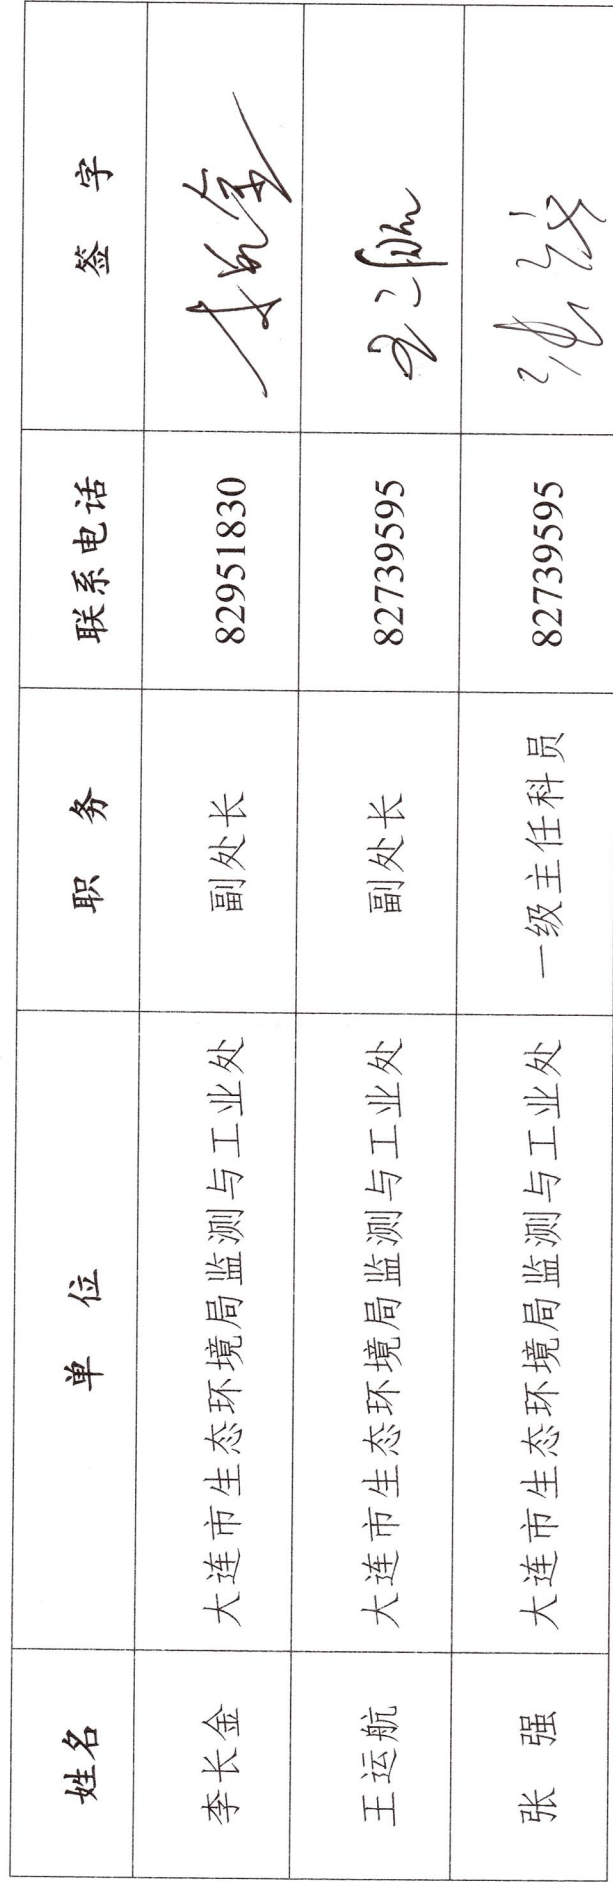 姓名 单 位 职 务 联系电话 签 字
李长金 大连市生态环境局监测与工业处 副处长 82951830 李长金
王运航 大连市生态环境局监测与工业处 副处长 82739595
张 强 大连市生态环境局监测与工业处 一级主任科员 82739595 张强